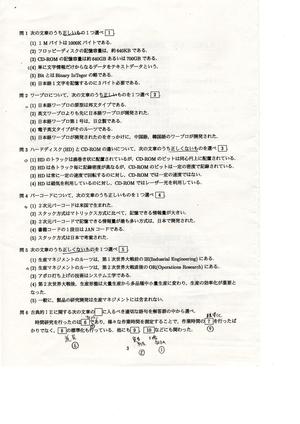 問1 次の文章のうち正しいもの1つ選べ 1 。
(1) 1Mバイトは1000Kバイトである。
(2) フロッピーディスクの記憶容量は、約640KBである。
(3) CD-ROMの記憶容量は約640GBあるいは700GBである。
(4) 単に文字情報だけからなるデータをテキストデータという。
(5) BitとはBinary InTegerの略である。
(6) 日本語1文字を記憶するのに3バイト必要である。
問2 ワープロについて、次の文章のうち正しいものを1つ選べ 2 。
(1) 日本語ワープロの原型は和文タイプである。
(2) 英文ワープロよりも先に日本語ワープロが開発された。
(3) 日本語ワープロ第1号は、日立製である。
(4) 電子英文タイプがそのルーツである。
(5) 日本語ワープロが開発されたのをきっかけに、中国語、韓国語のワープロが開発された。
問3 ハードディスク(HD)とCD-ROMの違いについて、次の文章のうち正しくないものを選べ 3 。
(1) HDのトラックは渦巻き状に配置されているが、CD-ROMのピットは同心円上に配置されている。
(2) HDは各トラック毎に記録密度が異なるが、CD-ROMのピットは一定の密度で記録されている。
(3) HDは常に一定の速度で回転するのに対し、CD-ROMでは一定の速度ではない。
(4) HDは磁気を利用しているのに対し、CD-ROMではレーザー光を利用している。
問4 バーコードについて、次の文章のうち正しいものを1つ選べ 4 。
(1) 2次元バーコードは米国で生まれた。
(2) スタック方式はマトリックス方式に比べて、記憶できる情報量が大きい。
(3) 2次元バーコードで記憶できる情報量が最も多い方式は、日本で開発された。
(4) 書籍コードの1段目はJANコードである。
(5) スタック方式は日本で考案された。
問5 次の文章のうち正しくないものを1つ選べ 5 。
(1) 生産マネジメントのルーツは、第1次世界大戦前のIE(Industrial Engineering)にある。
(2) 生産マネジメントのルーツは、第2次世界大戦前後のOR(Operations Research)にある。
(3) アポロ打ち上げの技術はシステム工学である。
(4) 第2次世界大戦後、生産形態は大量生産から多品種中小量生産に変わり、生産の効率化が重要となった。
(5) 一般に、製品の研究開発は生産マネジメントには含まれない。
問6 古典的IEに関する次の文章の に入るべき適切な語句を解答群の中から選べ。
時間研究を行ったのは 6 であり、様々な作業時間を測定することで、作業時間の 7 を行ったばかりでなく、 8 の標準化も行っている。他にも 9 、 10 などにも関わった。